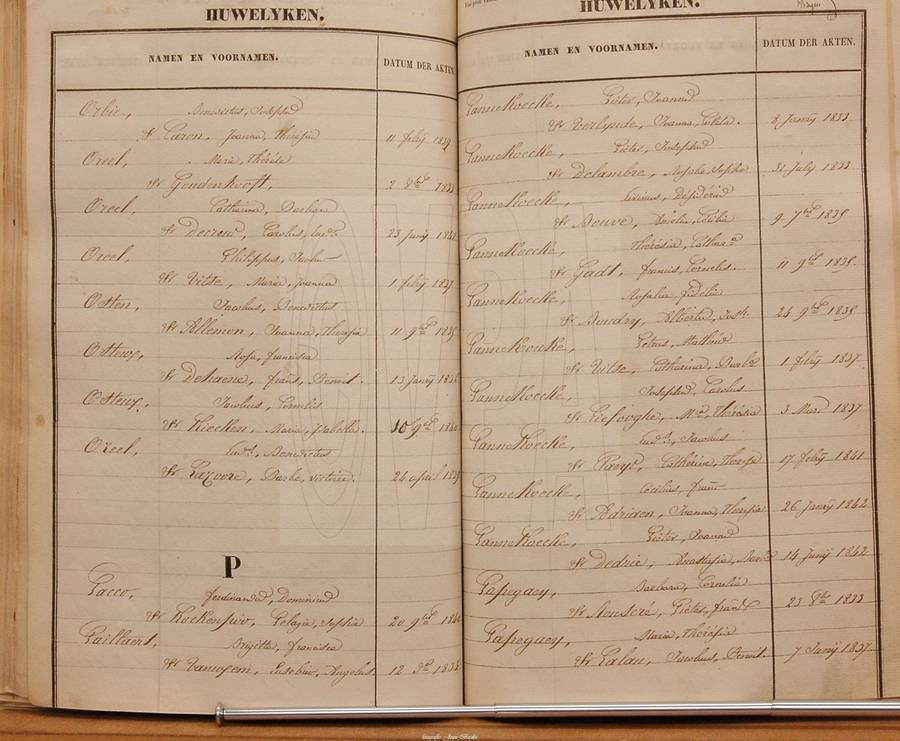 HUWELYKEN.
NAMEN EN VOORNAMEN. DATUM DER AKTEN.
Orbie, Benedictus, Josephus
& Caron, Joanna, Theresia 11 febrij 1839
Oreel, Maria, Thérèse
& Goudenhooft, 2 8bre 1833
Oreel, Catharina, Barbara
& Decrew, Carolus, Lud. 23 Junij 1841
Oreel, Philippus, Jacobus
& Vilte, Maria, Joanna 1 febrij 1837
Osten, Jacobus, Benedictus
& Allemon, Joanna, Theresia 11 9bre 1835
Ostewy, Rosa, francisca
& Dehaene, frans, Benoit. 13 Janij 1836
Ostewy, Jacobus, Cornelis
& Kiecken, Maria, Isabella. 10 9bre 1840
Ozeel, Lud., Benedictus
& Lazoore, Barbe, victoire. 24 april 1839
P
Pacco, ferdinandus, Dominicus
& Kockenpoo, Pelagia, Sophia 20 9bre 1840
Paillaert, Brigitta, francisca
& Vanwyem, Eusebius, Angelus. 12 1838
HUWELYKEN.
NAMEN EN VOORNAMEN. DATUM DER AKTEN.
PanneKoecke, Pieter, Joannes
& Verlynde, Joanna, Clelia. 8 Janij 1833
PanneKoecke, Pieter, Josephus
& Delambre, Rosalie, Sophie 31 July 1833
PanneKoecke, Désidérius
& Bouve, Amelia, Cecilia 9 7bre 1835
PanneKoecke, Thérèsia, Catharina
& Gadt, francis, Cornelis. 11 9bre 1835
PanneKoecke, Rosalia, fidélia
& Baudry, Albertus, Josh. 24 9bre 1835
PanneKoecke, Petrus, Mathius
& Vilte, Catharina, Barbe 1 febrij 1837
PanneKoecke, Josephus, Carolus
& Liefooghe, Mie, Thérésia 3 Mars 1837
PanneKoecke, Lud., Jacobus
& Kuyt, Catharina, Theresia 17 febrij 1841
PanneKoecke, Cecilius, frans
& Adriaen, Joanna, Theresia 26 Janij 1842
PanneKoecke, Pieter, Joannes
& Dedrie, Anastasia, Barbe 14 Junij 1842
Papegaey, Barbara, Cornelia
& Pieter, frans 23 8bre 1833
Papegaey, Maria, Thérésia
& Lalau, Jacobus, Benoit. 7 Junij 1837